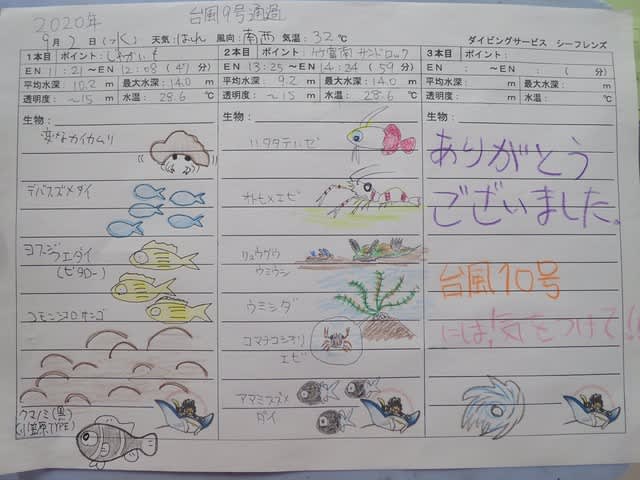 2020年 台風9号通過
9月2日(水) 天気:はれ 風向:南西 気温:32℃ ダイビングサービス シーフレンズ
1本目 ポイント:
EN 11:21〜EN 12:08(47分)
平均水深: 10.2 m 最大水深: 14.0 m
透明度: 〜15 m 水温: 28.6 ℃
生物:
変なカイカムリ
デバスズメダイ
ヨスジ
フエダイ
(ビタロー)
コモンシコロサンゴ
クマノミ(黒)
小笠原TYPE)
2本目 ポイント:竹富南 サンドロック
EN 13:25〜EN 14:24(59分)
平均水深: 9.2 m 最大水深: 14.0 m
透明度: 〜15 m 水温: 28.6 ℃
生物:
ハタタテハゼ
オトヒメエビ
リュウグウ
ウミウシ
ウミシダ
コマチコシオリ
エビ
アマミスズメ
ダイ
3本目 ポイント:
EN : 〜EN : ( 分)
平均水深: m 最大水深: m
透明度: m 水温: ℃
生物:
ありがとう
ございました。
台風10号
には、気をつけて!!